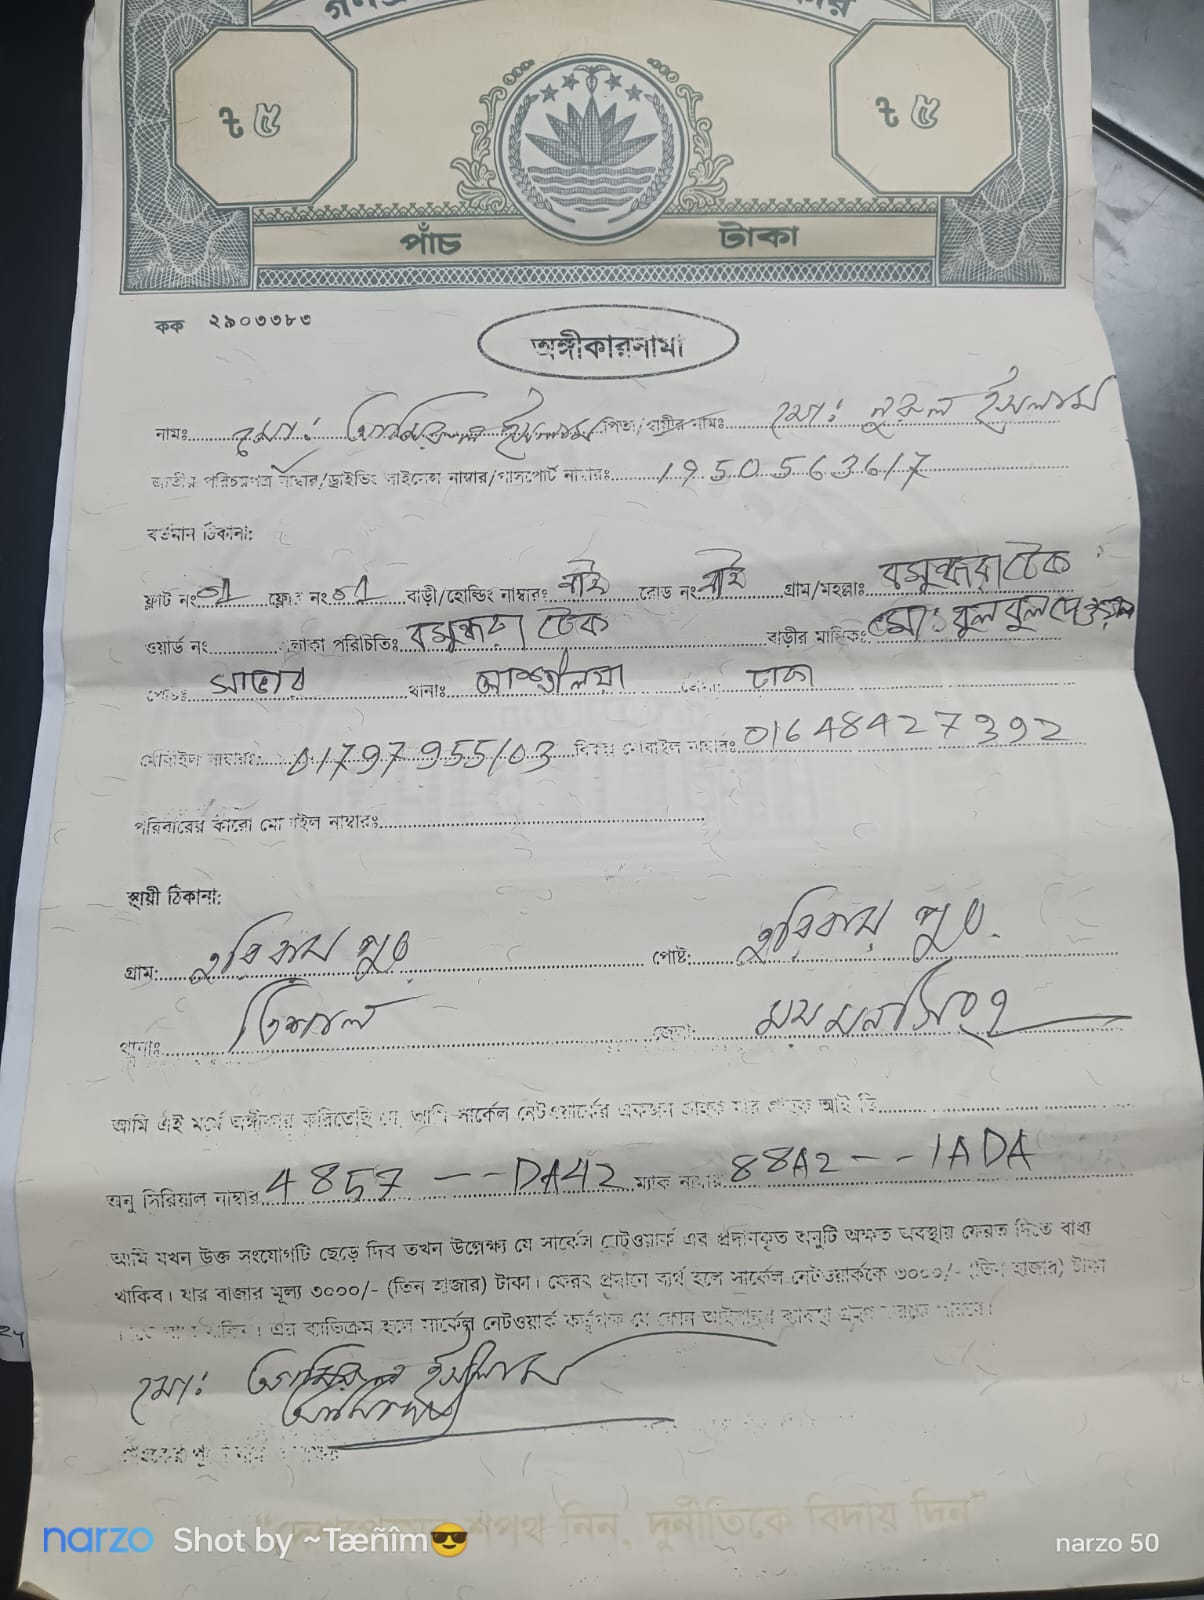 ৳ ৫ ৳ ৫
পাঁচ টাকা
কক ২৯০৩৩৮৩
অঙ্গীকারনামা
নামঃ মোঃ আমিরুল ইসলাম পিতা/স্বামীর নামঃ মোঃ নুরুল ইসলাম
জাতীয় পরিচয়পত্র নাম্বার/ড্রাইভিং লাইসেন্স নাম্বার/পাসপোর্ট নাম্বারঃ 1950563617
বর্তমান ঠিকানা:
ফ্লাট নং ০১ ফ্লোর নং ০১ বাড়ী/হোল্ডিং নাম্বারঃ নাই রোড নং নাই গ্রাম/মহল্লাঃ বসুন্ধরা টেক
ওয়ার্ড নং এলাকা পরিচিতিঃ বসুন্ধরা টেক বাড়ীর মালিকঃ মোঃ বুলবুল
সাভার থানাঃ আশুলিয়া ঢাকা
মোবাইল নাম্বারঃ 01797955103 বিকল্প মোবাইল নাম্বারঃ 01648427392
পরিবারের কারো মোবাইল নাম্বারঃ
স্থায়ী ঠিকানা:
গ্রাম: হরিরাম পুর পোষ্ট: হরিরাম পুর
থানাঃ ত্রিশাল জেলা: ময়মনসিংহ
আমি এই মর্মে অঙ্গীকার করিতেছি যে, আমি সার্কেল নেটওয়ার্কের একজন গ্রাহক যার গ্রাহক আই ডি
অনু সিরিয়াল নাম্বার 4857 --- DA42 ম্যাক নাম্বার 88A2 --- 1ADA
আমি যখন উক্ত সংযোগটি ছেড়ে দিব তখন উল্লেক্ষ্য যে সার্কেল নেটওয়ার্ক এর প্রদানকৃত অনুটি অক্ষত অবস্থায় ফেরত দিতে বাধ্য
থাকিব। যার বাজার মূল্য ৩০০০/- (তিন হাজার) টাকা। ফেরৎ প্রদানে ব্যর্থ হলে সার্কেল নেটওয়ার্ককে ৩০০০/- (তিন হাজার) টাকা
এর ব্যতিক্রম হলে সার্কেল নেটওয়ার্ক কর্তৃপক্ষ যে কোন আইনানুগ ব্যবস্থা গ্রহণ করতে পারবে।
মোঃ আমিরুল ইসলাম
শপথ নিন, দুর্নীতিকে বিদায় দিন"
narzo Shot by ~Tæñîm😎 narzo 50